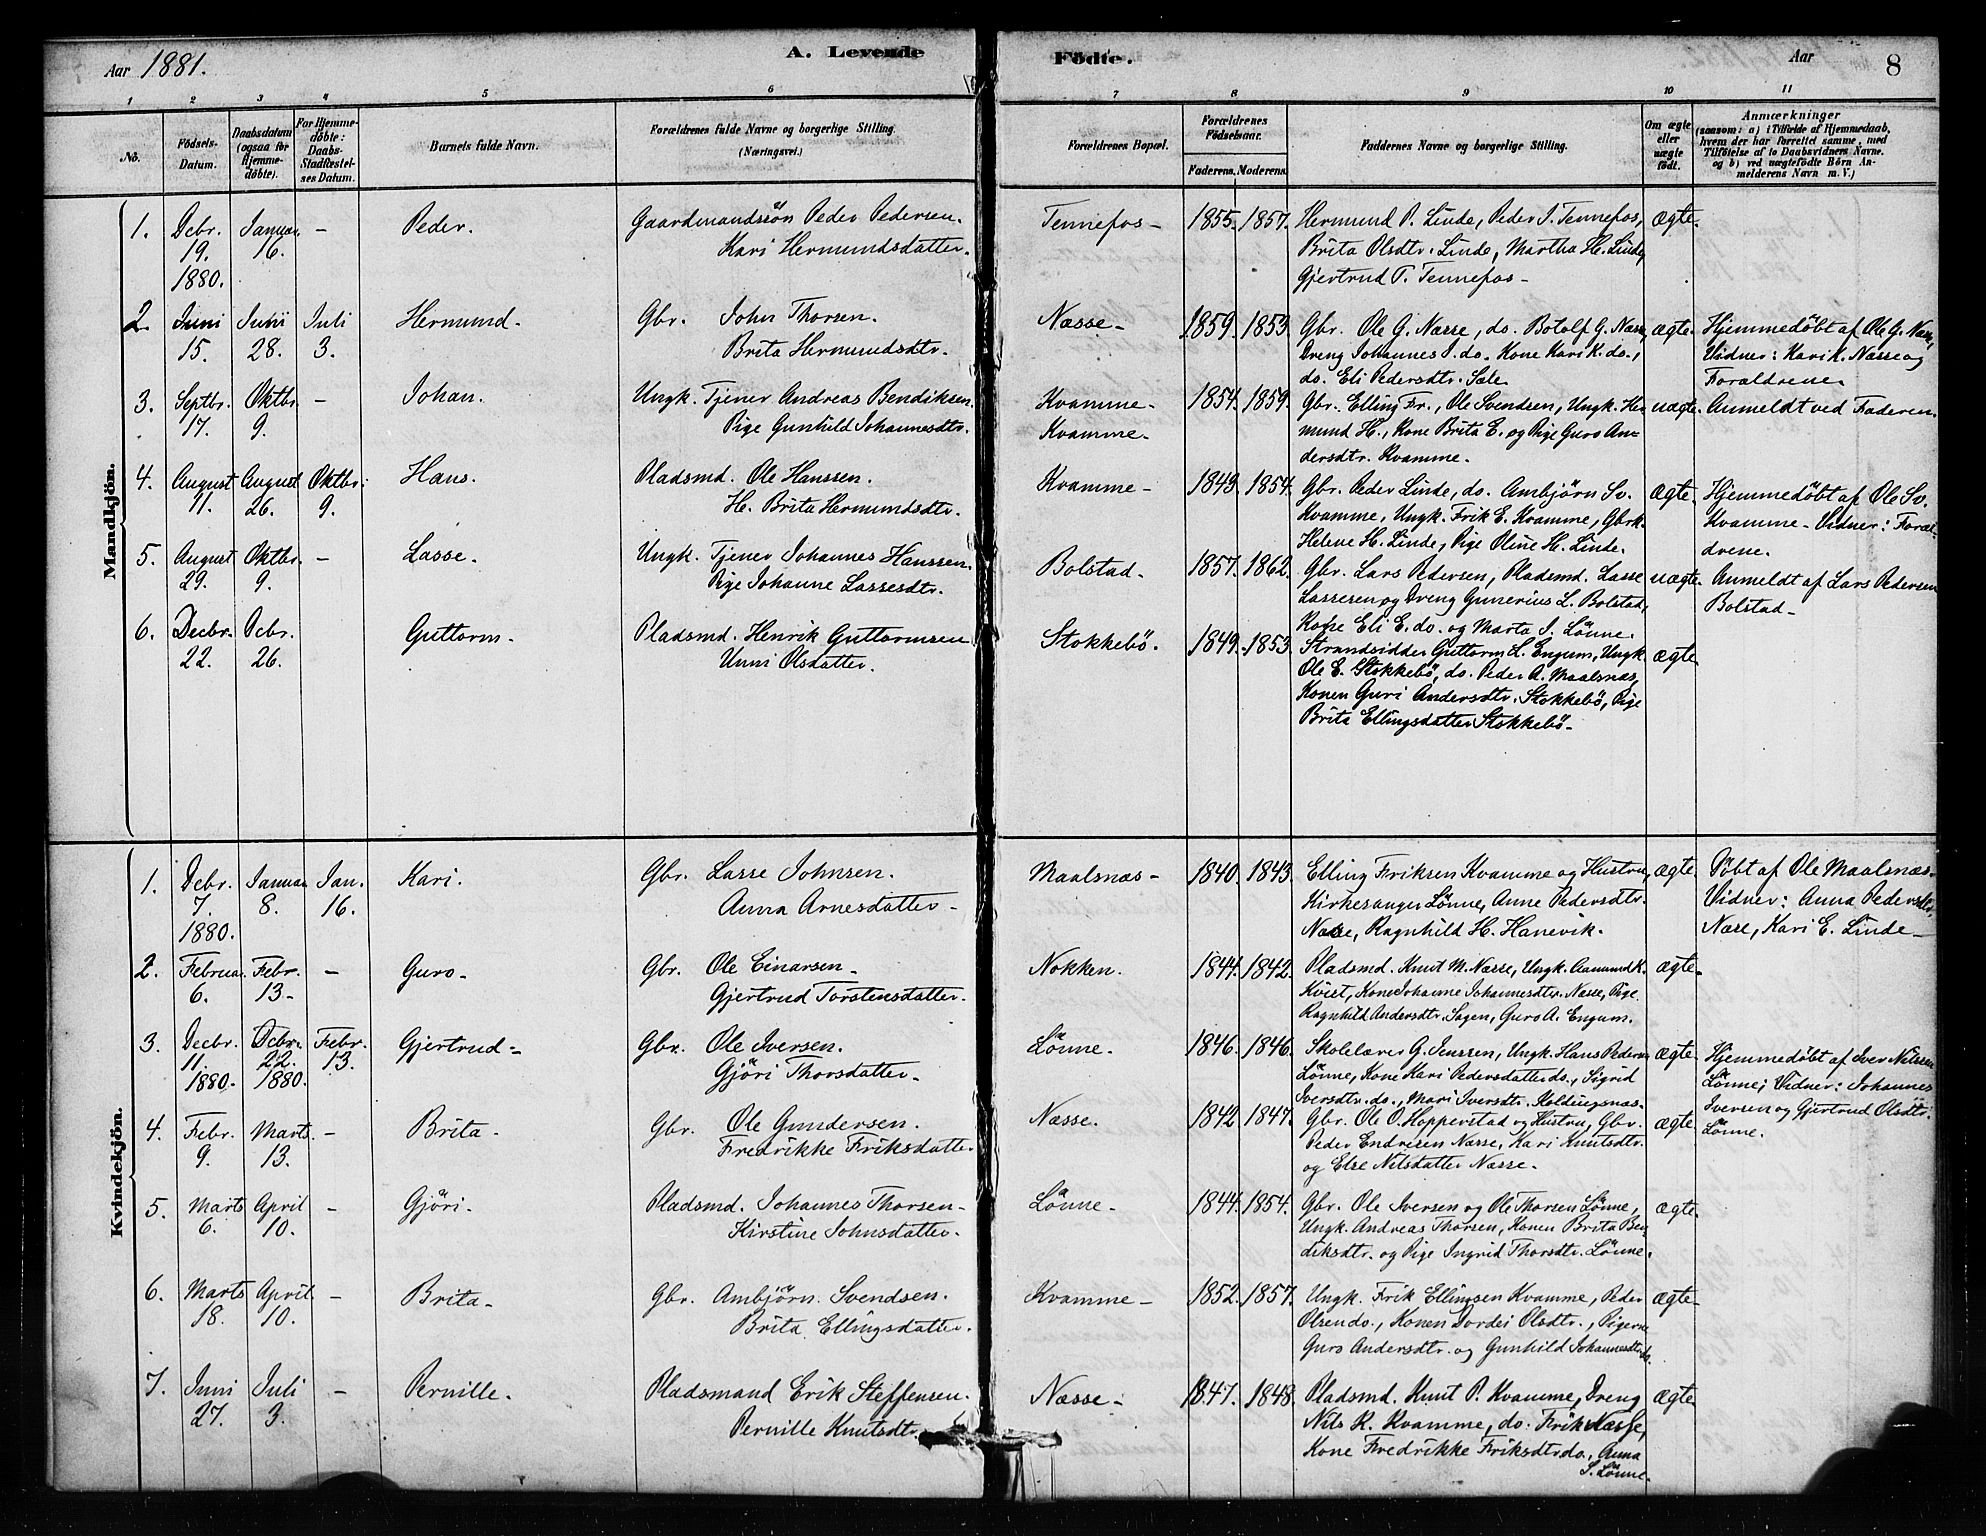 Aar 1881.
A. Levende
Födte.
Aar
8
1
2
3
4
5
6
7
8
9
10
11
No.
Födsels-
Datum.
Daabsdatum
(ogsaa for
Hjemme-
döbte).
For Hjemme-
döbte:
Daabs-
Stadfæstel-
ses Datum.
Barnets fulde Navn.
Forældrenes fulde Navne og borgerlige Stilling.
(Næringsvei.)
Forældrenes Bopæl.
Forældrenes
Födselsaar.
Faderens. Moderens.
Faddernes Navne og borgerlige Stilling.
Om ægte
eller
uægte
födt.
Anmærkninger
(saasom: a) i Tilfælde af Hjemmedaab,
hvem der har forrettet samme, med
Tilföielse af to Daabsvidners Navne.
og b) ved uægtefödte Börn An-
melderens Navn m. V.)
Mandkjön.
1. Debr. Januar - Peder. Gaardmandssön Peder Pedersen. Tennefos - 1855. 1857. Hermund P. Linde, Peder J. Tennefos, ægte.
19. 16. Kari Hermundsdatter. Brita Olsdtr. Linde, Martha H. Linde,
1880. Gjertrud P. Tennefos -
2. Juni Juni Juli Hermund. Gbr. John Thorsen. Næsse - 1859. 1853. Gbr. Ole G. Næsse, do. Botolf G. Næsse, ægte. Hjemmedöbt af Ole G. Næsse,
15. 28. 3. Brita Hermundsdtr. Dreng Johannes J. do. Kone Kari K. do., Vidner: Kari K. Næsse og
do. Eli Pedersdtr. Sæle. Forældrene.
3. Septbr. Oktbr. - Johan. Ungk. Tjener Andreas Bendiksen. Kvamme - 1854. 1859. Gbr. Elling Fr., Ole Svendsen, Ungk. Her- uægte. Anmeldt ved Faderen.
17. 9. Pige Gunhild Johannesdtr. Kvamme - mund H., Kone Brita E. og Pige Guro An-
dersdtr. Kvamme.
4. August August Oktbr. Hans. Pladsmd. Ole Hanssen. Kvamme - 1849. 1854. Gbr. Peder Linde, do. Ambjörn Sv. ægte. Hjemmedöbt af Ole Sv.
11. 26. 9. H. Brita Hermundsdtr. Kvamme, Ungk. Frik E. Kvamme, Gbrk. Kvamme - Vidner: Foræl-
Helene H. Linde, Pige Oline H. Linde. drene.
5. August Oktbr. - Lasse. Ungk. Tjener Johannes Hanssen. Bolstad. 1857. 1862. Gbr. Lars Pedersen, Pladsmd. Lasse uægte. Anmeldt af Lars Pedersen
29. 9. Pige Johanne Lassesdtr. Lassesen og Dreng Gunerius L. Bolstad, Bolstad -
Kone Eli E. do. og Marta J. Lönne.
6. Decbr. Dcbr. Guttorm. Pladsmd. Henrik Guttormsen Stokkebö. 1849. 1853. Strandsidder Guttorm L. Engum, Ungk. ægte
22. 26. Unni Olsdatter. Ole E. Stokkebö, do. Peder A. Maalsnæs,
Konen Guri Andersdtr. Stokkebö, Pige
Brita Ellingsdatter Stokkebö -
Kvindekjön.
1. Debr. Januar Jan. Kari. Gbr. Lasse Johnsen. Maalsnæs - 1840. 1843. Elling Friksen Kvamme og Hustru, ægte. Döbt af Ole Maalsnæs.
7. 8. 16. Anna Arnesdatter - Kirkesanger Lönne, Anne Pedersdtr. Vidner: Anna Pedersdtr.
1880. Næsse, Ragnhild H. Hanevik. Næse, Kari E. Linde -
2. Februar Febr. - Guro. Gbr. Ole Einarsen - Nokken. 1844. 1842. Pladsmd. Knut M. Næsse, Ungk. Aamund K. ægte.
6. 13. Gjertrud Torstensdatter. Kvist, Kone Johanne Johannesdtr. Næsse, Pige
Ragnhild Andersdtr. Sagen, Guro A. Engum.
3. Decbr. Dcbr. Febr. Gjertrud - Gbr. Ole Iversen. Lönne. 1846. 1846. Skolelærer G. Jenssen, Ungk. Hans Pedersen ægte. Hjemmedöbt af Iver Nilssen
11. 22. 13. Gjöri Thorsdatter. Lönne, Kone Kari Pedersdatter do., Sigrid Lönne; Vidner: Johannes
1880. 1880. Iversdtr. do., Mari Iversdtr. Holdingsnæs. Iversen og Gjertrud Olsdtr.
Lönne.
4. Febr. Marts - Brita. Gbr. Ole Gundersen. Næsse. 1842 1847. Gbr. Ole O. Hopperstad og Hustru, Gbr. ægte.
9. 13. Fredrikke Friksdatter Peder Endresen Næsse, Kari Knutsdtr.
og Else Nilsdatter Næsse.
5. Marts April - Gjöri. Pladsmd. Johannes Thorsen - Lönne. 1844. 1854. Gbr. Ole Iversen og Ole Thorsen Lönne, ægte.
6. 10. Kirstine Johnsdatter. Ungk. Andreas Thorsen, Konen Brita Ben-
diksdtr. og Pige Ingrid Thorsdtr. Lönne.
6. Marts April - Brita. Gbr. Ambjörn Svendsen. Kvamme - 1852. 1857. Ungk. Frik Ellingsen Kvamme, Peder ægte.
18. 10. Brita Ellingsdatter. Olsen do., Konen Dordei Olsdtr., Pigerne
Guro Andersdtr. og Gunhild Johannesdtr. do.
7. Juni Juli - Pernille. Pladsmand Erik Steffensen. Næsse - 1847. 1848. Pladsmd. Knut P. Kvamme, Dreng ægte
27. 3. Pernille Knutsdtr. Nils K. Kvamme, do. Frik Næsse,
Kone Fredrikke Friksdtr. do., Anna
S. Lönne.